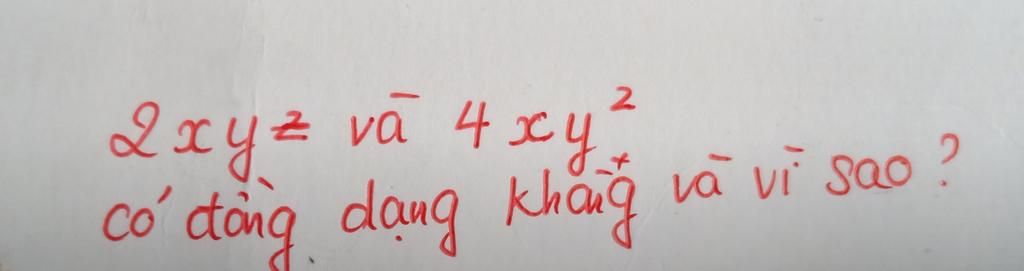 2xyz và 4xy²
có đồng dạng không và vì sao?